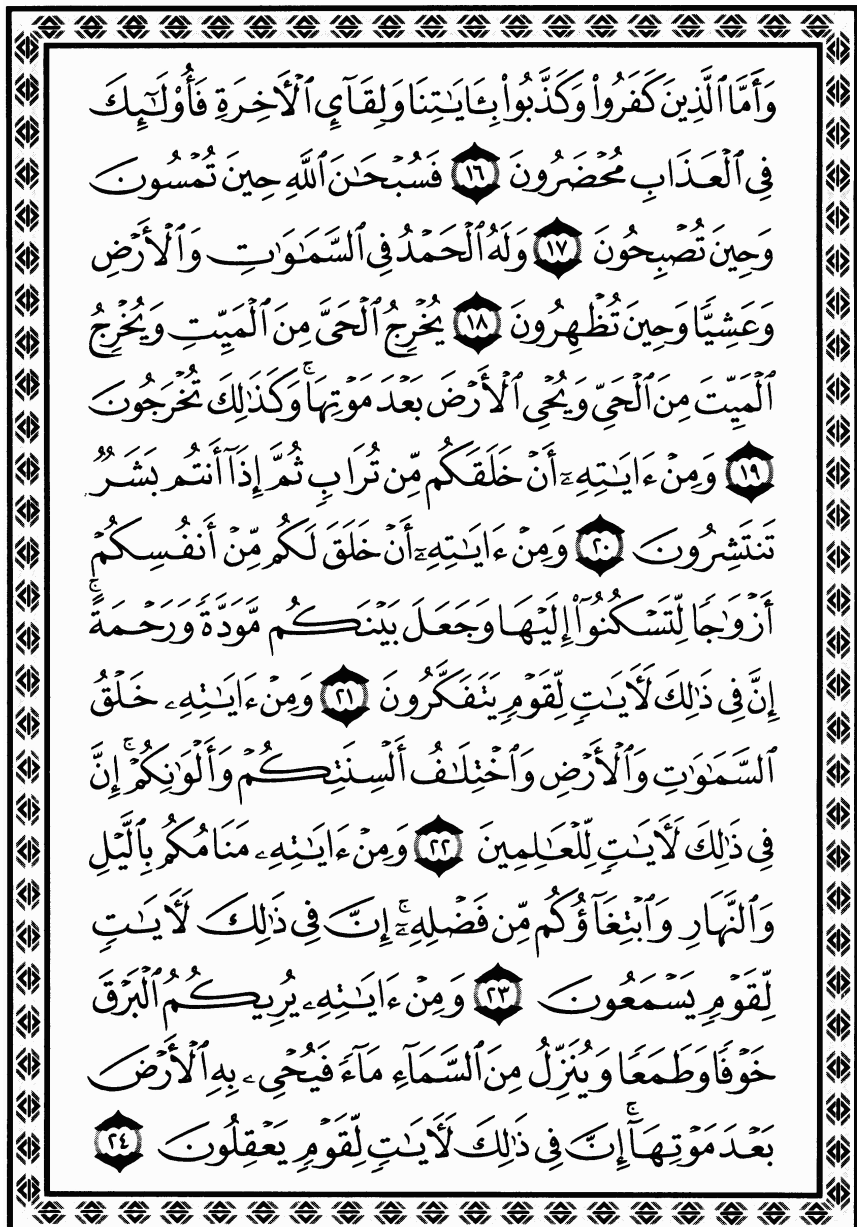 وَأَمَّا ٱلَّذِينَ كَفَرُواْ وَكَذَّبُواْ بِـَٔايَـٰتِنَا وَلِقَآيِٕ ٱلْأَخِرَةِ فَأُوْلَـٰٓئِكَ
فِى ٱلْعَذَابِ مُحْضَرُونَ ١٦ فَسُبْحَـٰنَ ٱللَّهِ حِينَ تُمْسُونَ
وَحِينَ تُصْبِحُونَ ١٧ وَلَهُ ٱلْحَمْدُ فِى ٱلسَّمَـٰوَٰتِ وَٱلْأَرْضِ
وَعَشِيًّا وَحِينَ تُظْهِرُونَ ١٨ يُخْرِجُ ٱلْحَىَّ مِنَ ٱلْمَيِّتِ وَيُخْرِجُ
ٱلْمَيِّتَ مِنَ ٱلْحَىِّ وَيُحْىِ ٱلْأَرْضَ بَعْدَ مَوْتِهَا ۚ وَكَذَٰلِكَ تُخْرَجُونَ
١٩ وَمِنْ ءَايَـٰتِهِۦٓ أَنْ خَلَقَكُم مِّن تُرَابٍ ثُمَّ إِذَآ أَنتُم بَشَرٌ
تَنتَشِرُونَ ٢٠ وَمِنْ ءَايَـٰتِهِۦٓ أَنْ خَلَقَ لَكُم مِّنْ أَنفُسِكُمْ
أَزْوَٰجًا لِّتَسْكُنُوٓاْ إِلَيْهَا وَجَعَلَ بَيْنَكُم مَّوَدَّةً وَرَحْمَةً ۚ
إِنَّ فِى ذَٰلِكَ لَأَيَـٰتٍ لِّقَوْمٍ يَتَفَكَّرُونَ ٢١ وَمِنْ ءَايَـٰتِهِۦ خَلْقُ
ٱلسَّمَـٰوَٰتِ وَٱلْأَرْضِ وَٱخْتِلَـٰفُ أَلْسِنَتِكُمْ وَأَلْوَٰنِكُمْ ۚ إِنَّ
فِى ذَٰلِكَ لَأَيَـٰتٍ لِّلْعَـٰلِمِينَ ٢٢ وَمِنْ ءَايَـٰتِهِۦ مَنَامُكُم بِٱلَّيْلِ
وَٱلنَّهَارِ وَٱبْتِغَآؤُكُم مِّن فَضْلِهِۦٓ ۚ إِنَّ فِى ذَٰلِكَ لَأَيَـٰتٍ
لِّقَوْمٍ يَسْمَعُونَ ٢٣ وَمِنْ ءَايَـٰتِهِۦ يُرِيكُمُ ٱلْبَرْقَ
خَوْفًا وَطَمَعًا وَيُنَزِّلُ مِنَ ٱلسَّمَآءِ مَآءً فَيُحْىِۦ بِهِ ٱلْأَرْضَ
بَعْدَ مَوْتِهَآ ۚ إِنَّ فِى ذَٰلِكَ لَأَيَـٰتٍ لِّقَوْمٍ يَعْقِلُونَ ٢٤